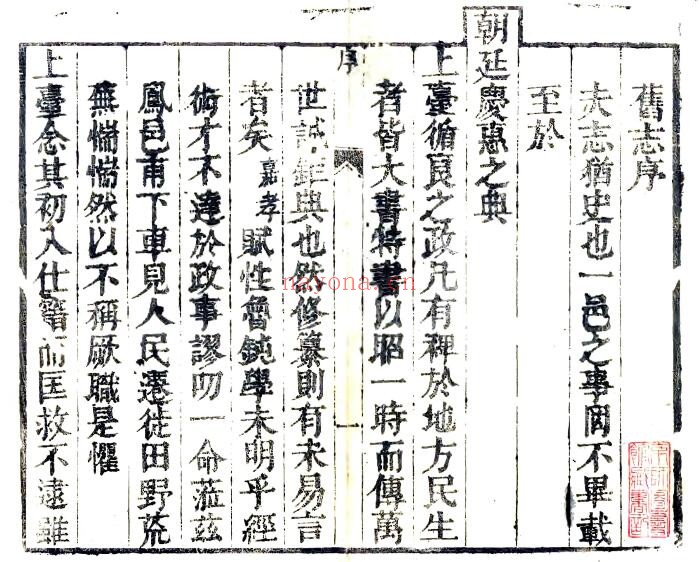 舊志序
夫志猶史也一邑之事罔不畢載
至於
朝廷慶惠之典
上臺循良之政凡有裨於地方民生
者皆大書特書以昭一時而傳萬
序
一
世誠鉅典也然修纂則有未易言
者矣嘉孝賦性魯鈍學未明乎經
術才不達於政事謬叨一命蒞茲
鳳邑甫下車見人民遷徙田野荒
蕪惴惴然以不稱厥職是懼
上臺念其初入仕籍而匡救不逮雖
nayona.cn